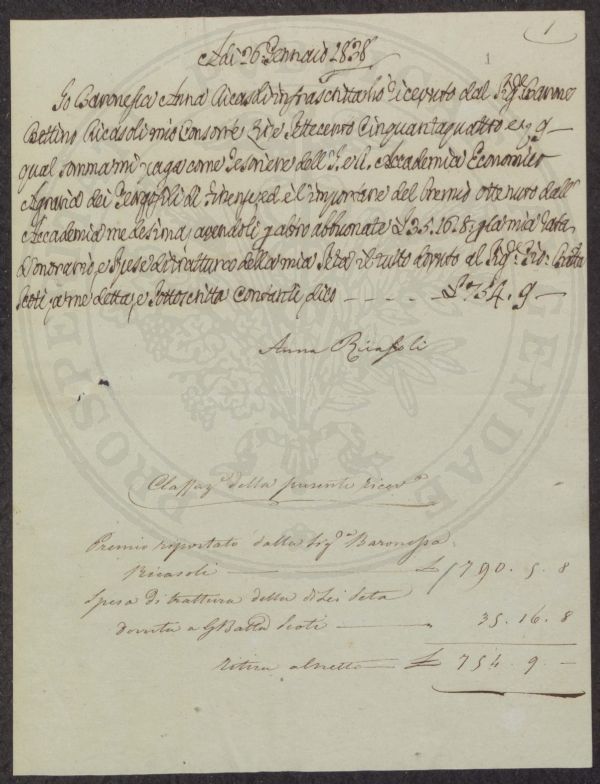 1
1
Adi 26 Gennaio 1838
Io Baronessa Anna Ricasoli infrascritta ho ricevuto dal Sig.re Barone
Bettino Ricasoli mio Consorte Lire Settecento Cinquantaquattro e 9
qual somma mi paga come Tesoriere dell' I. e R. Accademia Economico
Agraria dei Georgofili di Firenze, ed è l'importare del Premio ottenuto dall'
Accademia medesima, avendoli p altro abbuonate £ 35.16.8 p la mia rata
d'onorario, e Spese di trattura della mia Seta il tutto dovuto al Sig.re Gio. Batta
Scoti, a me detta, e sottoscritta Contanti dico - - - - - £ 754. 9 —
Anna Ricasoli
Classaz.e della presente ricev.a
Premio riportato dalla Sig.a Baronessa
Ricasoli — £ 790. 5. 8
Spesa di trattura della di Lei Seta
dovuta a GBatta Scoti — 35. 16. 8
ritira al netto — £ 754. 9. —
PROSPE
ENDAE